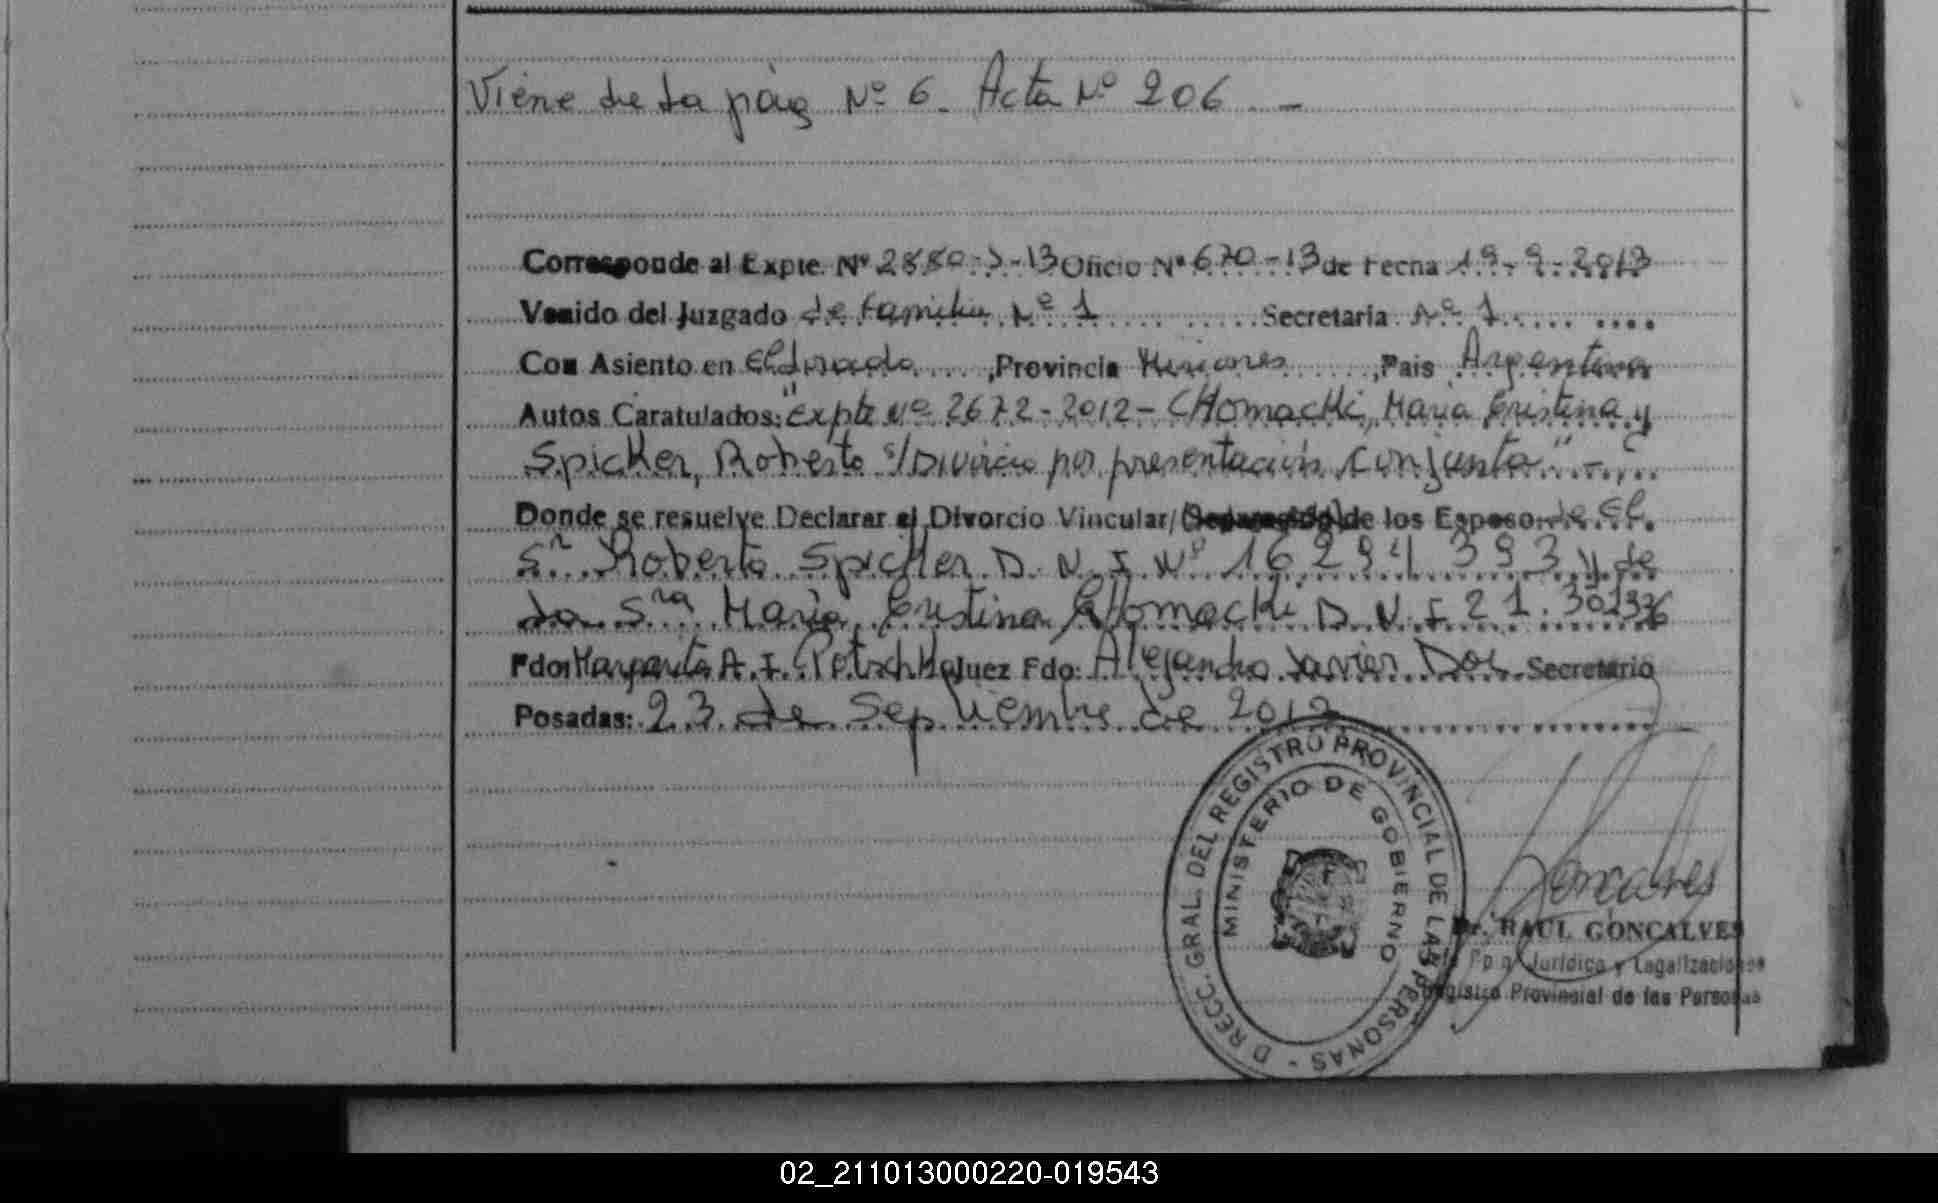 Viene de la pág Nº 6. Acta Nº 206. -
Corresponde al Expte. Nº 2880-J-13 Oficio Nº 670-13 de Fecha 19-9-2013
Venido del Juzgado de Familia Nº 1 Secretaria Nº 1
Con Asiento en Eldorado, Provincia Misiones, Pais Argentina
Autos Caratulados: "Expte Nº 2672-2012- CHomacKi, Maria Cristina y
Spicker, Roberto s/Divorcio por presentación Conjunta".-
Donde se resuelve Declarar el Divorcio Vincular/ de los Esposo: de El
Sr. Roberto Spicker D.N.I. Nº 16.294.393 y de
la Sra Maria Cristina CHomacKi D.N.I 21.301.
Fdo: Margarita A. I. Potschka Juez Fdo: Alejandro Javier Secretario
Posadas: 23 de Septiembre de
DIRECC. GRAL. DEL REGISTRO PROVINCIAL DE LAS PERSONAS -
MINISTERIO DE GOBIERNO
Goncalves
Dr. RAUL GONCALVES
Jurídico y Legalizaciones
Registro Provincial de las Personas
02_211013000220-019543